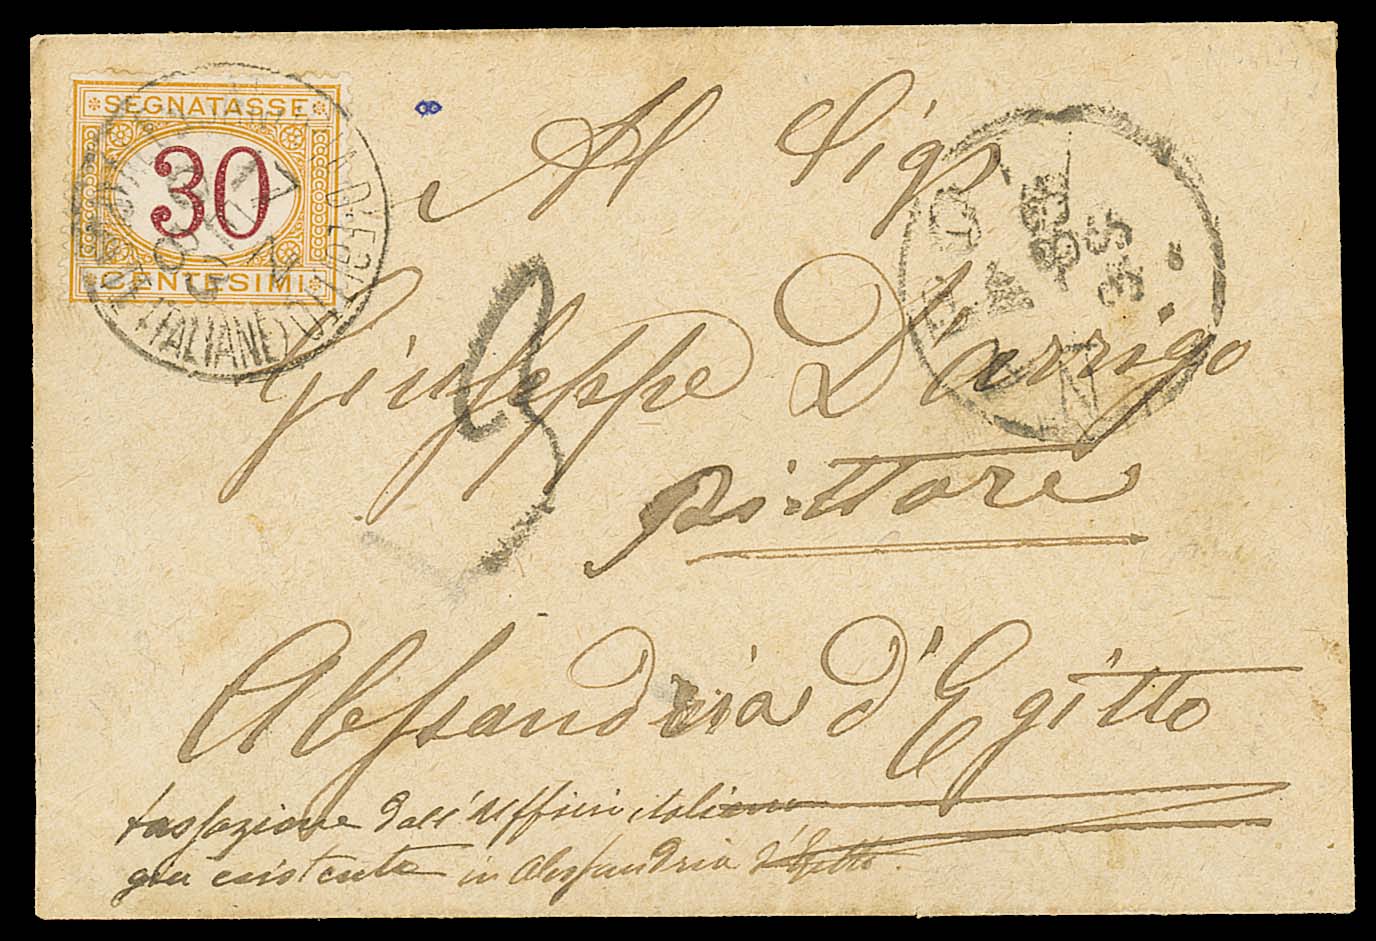 SEGNATASSE
30
CENTESIMI
Al Sigr
Giuseppe Darrigo
pittore
3
Alessandria d'Egitto
tassazione dall'Ufficio italiano
già esistente in Alessandria d'Egitto.
POSTE ITALIANE